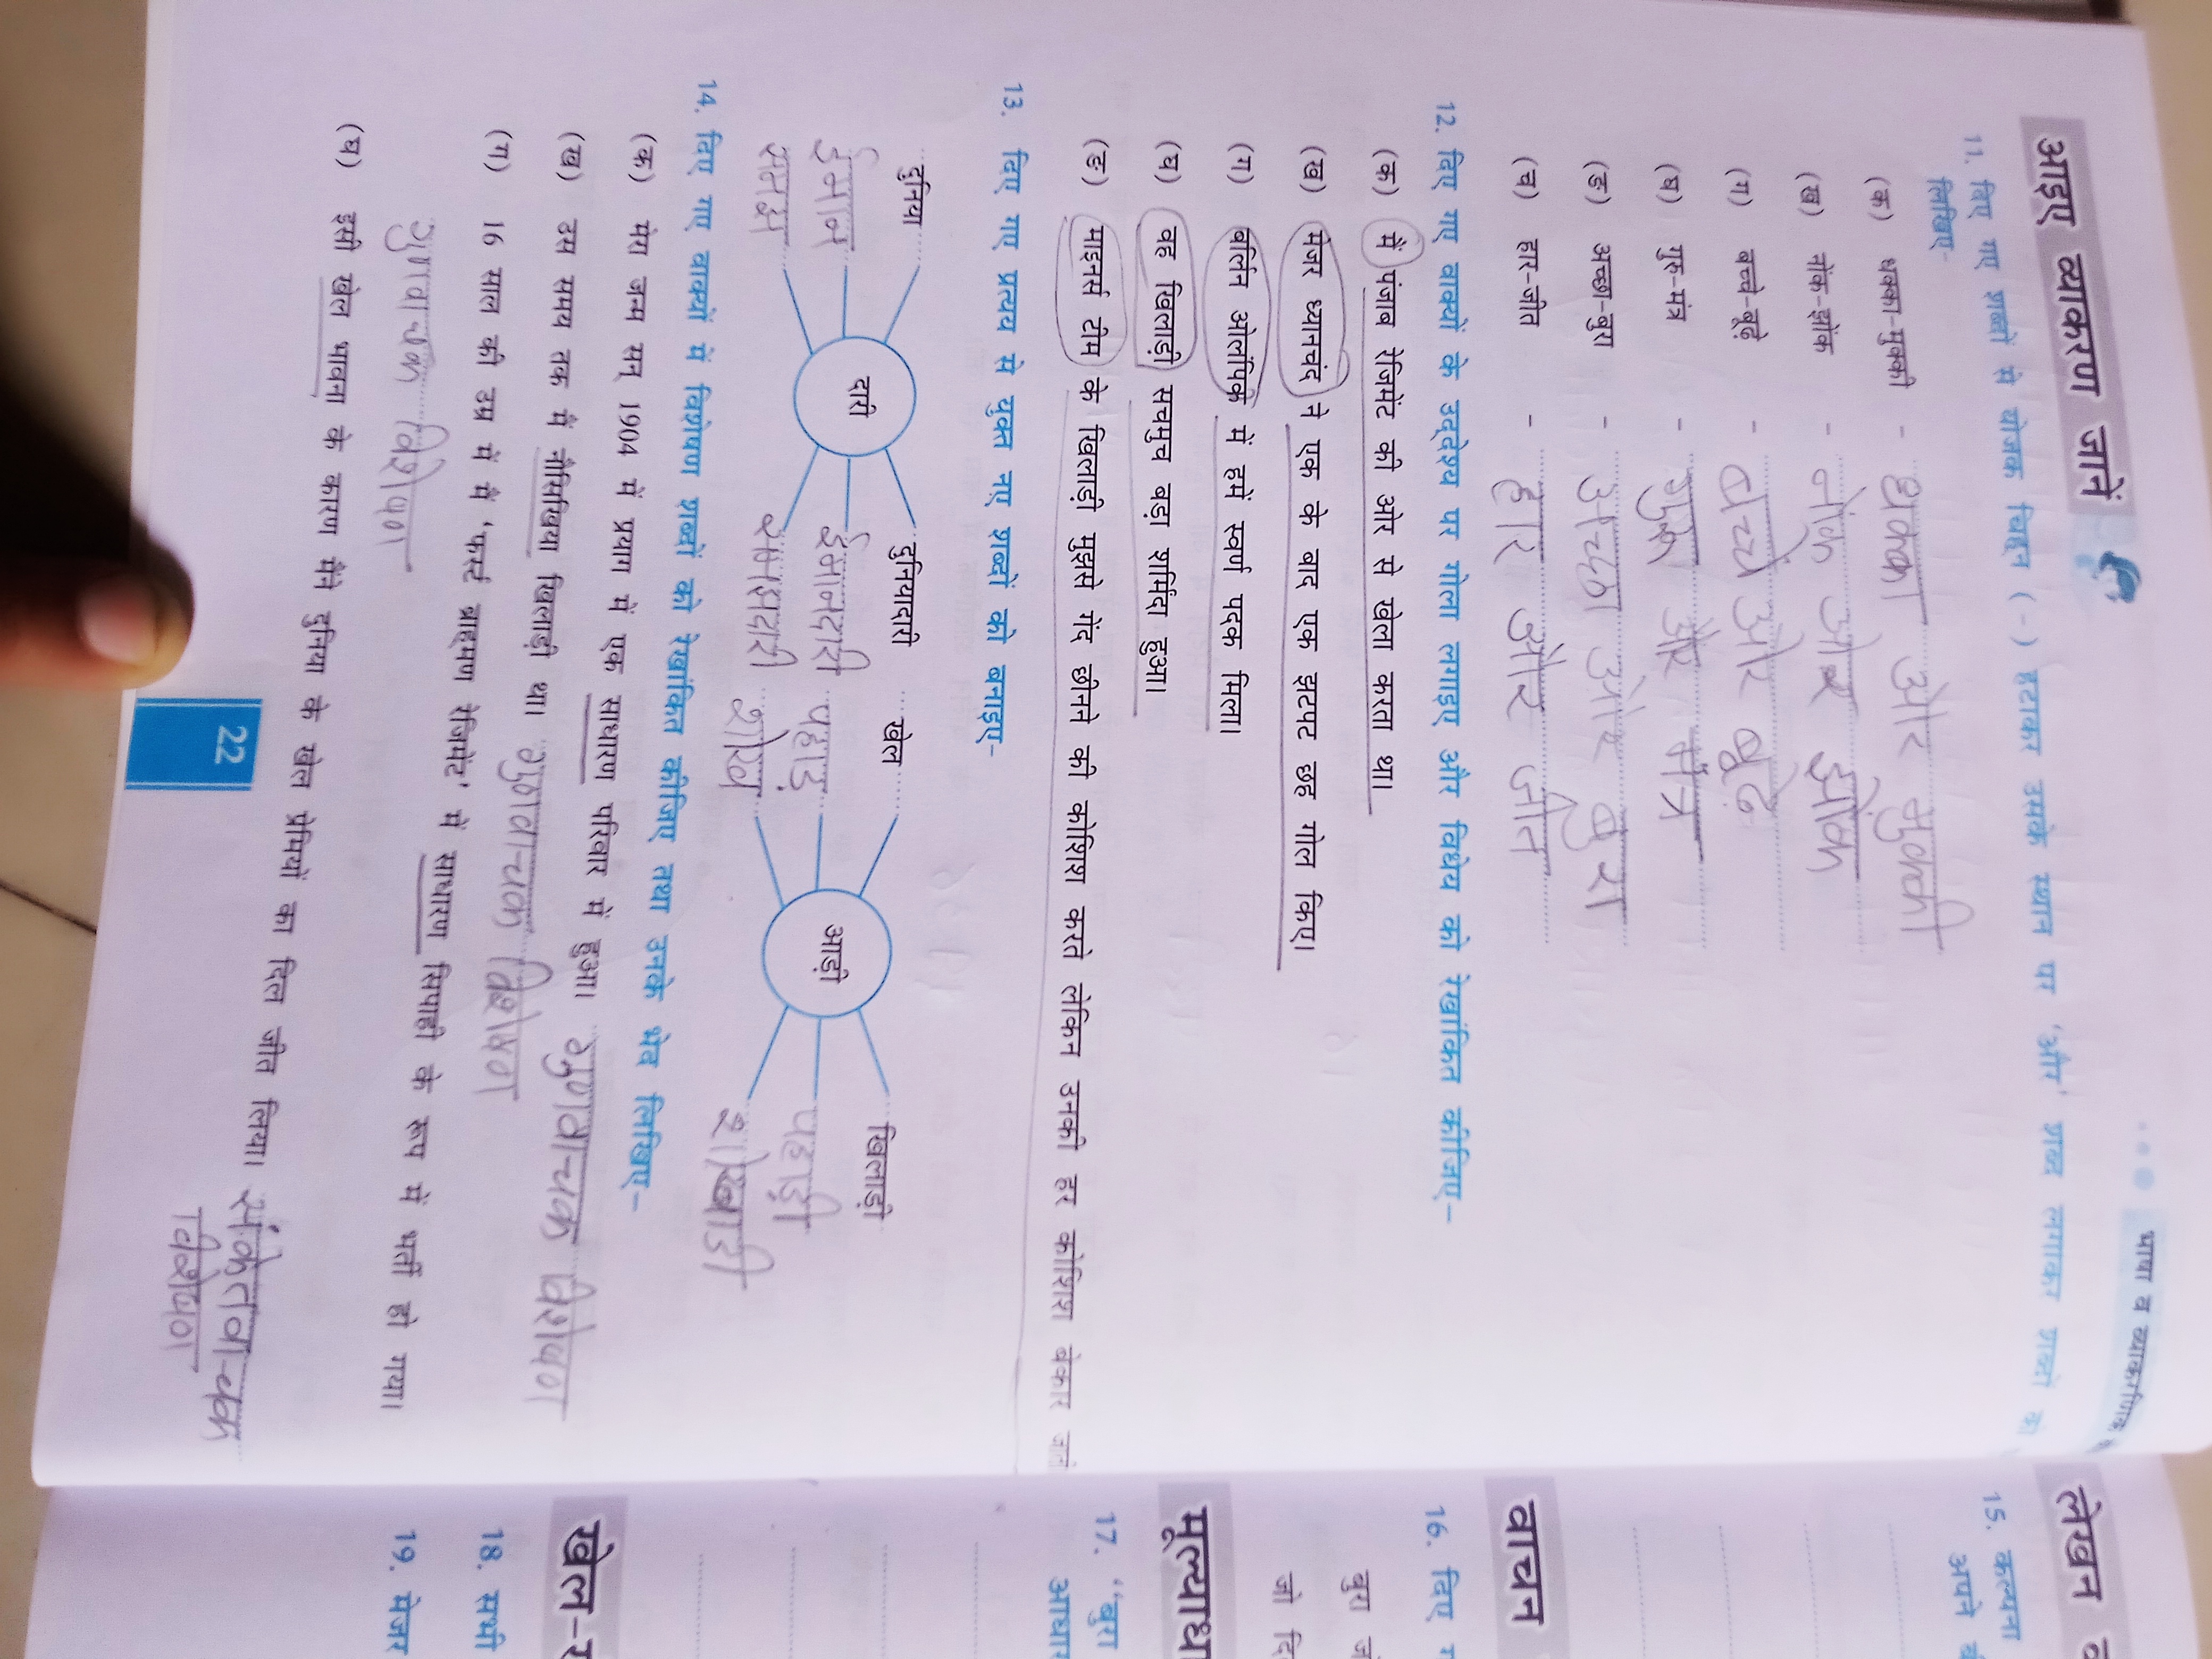 भाषा व व्याकरणिक
आइए व्याकरण जानें
11. दिए गए शब्दों से योजक चिह्न (-) हटाकर उसके स्थान पर 'और' शब्द लगाकर शब्दों को
लिखिए-
(क) धक्का-मुक्की - धक्का और मुक्की
(ख) नोंक-झोंक - नोंक और झोंक
(ग) बच्चे-बूढ़े - बच्चे और बूढ़े
(घ) गुरु-मंत्र - गुरु और मंत्र
(ङ) अच्छा-बुरा - अच्छा और बुरा
(च) हार-जीत - हार और जीत
12. दिए गए वाक्यों के उद्देश्य पर गोला लगाइए और विधेय को रेखांकित कीजिए-
(क) मैं पंजाब रेजिमेंट की ओर से खेला करता था।
(ख) मेजर ध्यानचंद ने एक के बाद एक झटपट छह गोल किए।
(ग) बर्लिन ओलंपिक में हमें स्वर्ण पदक मिला।
(घ) वह खिलाड़ी सचमुच बड़ा शर्मिंदा हुआ।
(ङ) माइनर्स टीम के खिलाड़ी मुझसे गेंद छीनने की कोशिश करते लेकिन उनकी हर कोशिश बेकार जाती
13. दिए गए प्रत्यय से युक्त नए शब्दों को बनाइए-
दुनिया दुनियादारी खेल खिलाड़ी
ईमान दारी ईमानदारी पहाड़ आड़ी पहाड़ी
समझ समझदारी
14. दिए गए वाक्यों में विशेषण शब्दों को रेखांकित कीजिए तथा उनके भेद लिखिए-
(क) मेरा जन्म सन् 1904 में प्रयाग में एक साधारण परिवार में हुआ। गुणवाचक विशेषण
(ख) उस समय तक मैं नौसिखिया खिलाड़ी था। गुणवाचक विशेषण
(ग) 16 साल की उम्र में मैं 'फर्स्ट ब्राह्मण रेजिमेंट' में साधारण सिपाही के रूप में भर्ती हो गया।
गुणवाचक विशेषण
(घ) इसी खेल भावना के कारण मैंने दुनिया के खेल प्रेमियों का दिल जीत लिया। संकेतवाचक
विशेषण
22
लेखन
15. कल्पना
अपने
वाचन
16. दिए
बुरा
जो
मूल्याध
17. "बुरा
आधार
खेल-
18. सभी
19. मेजर